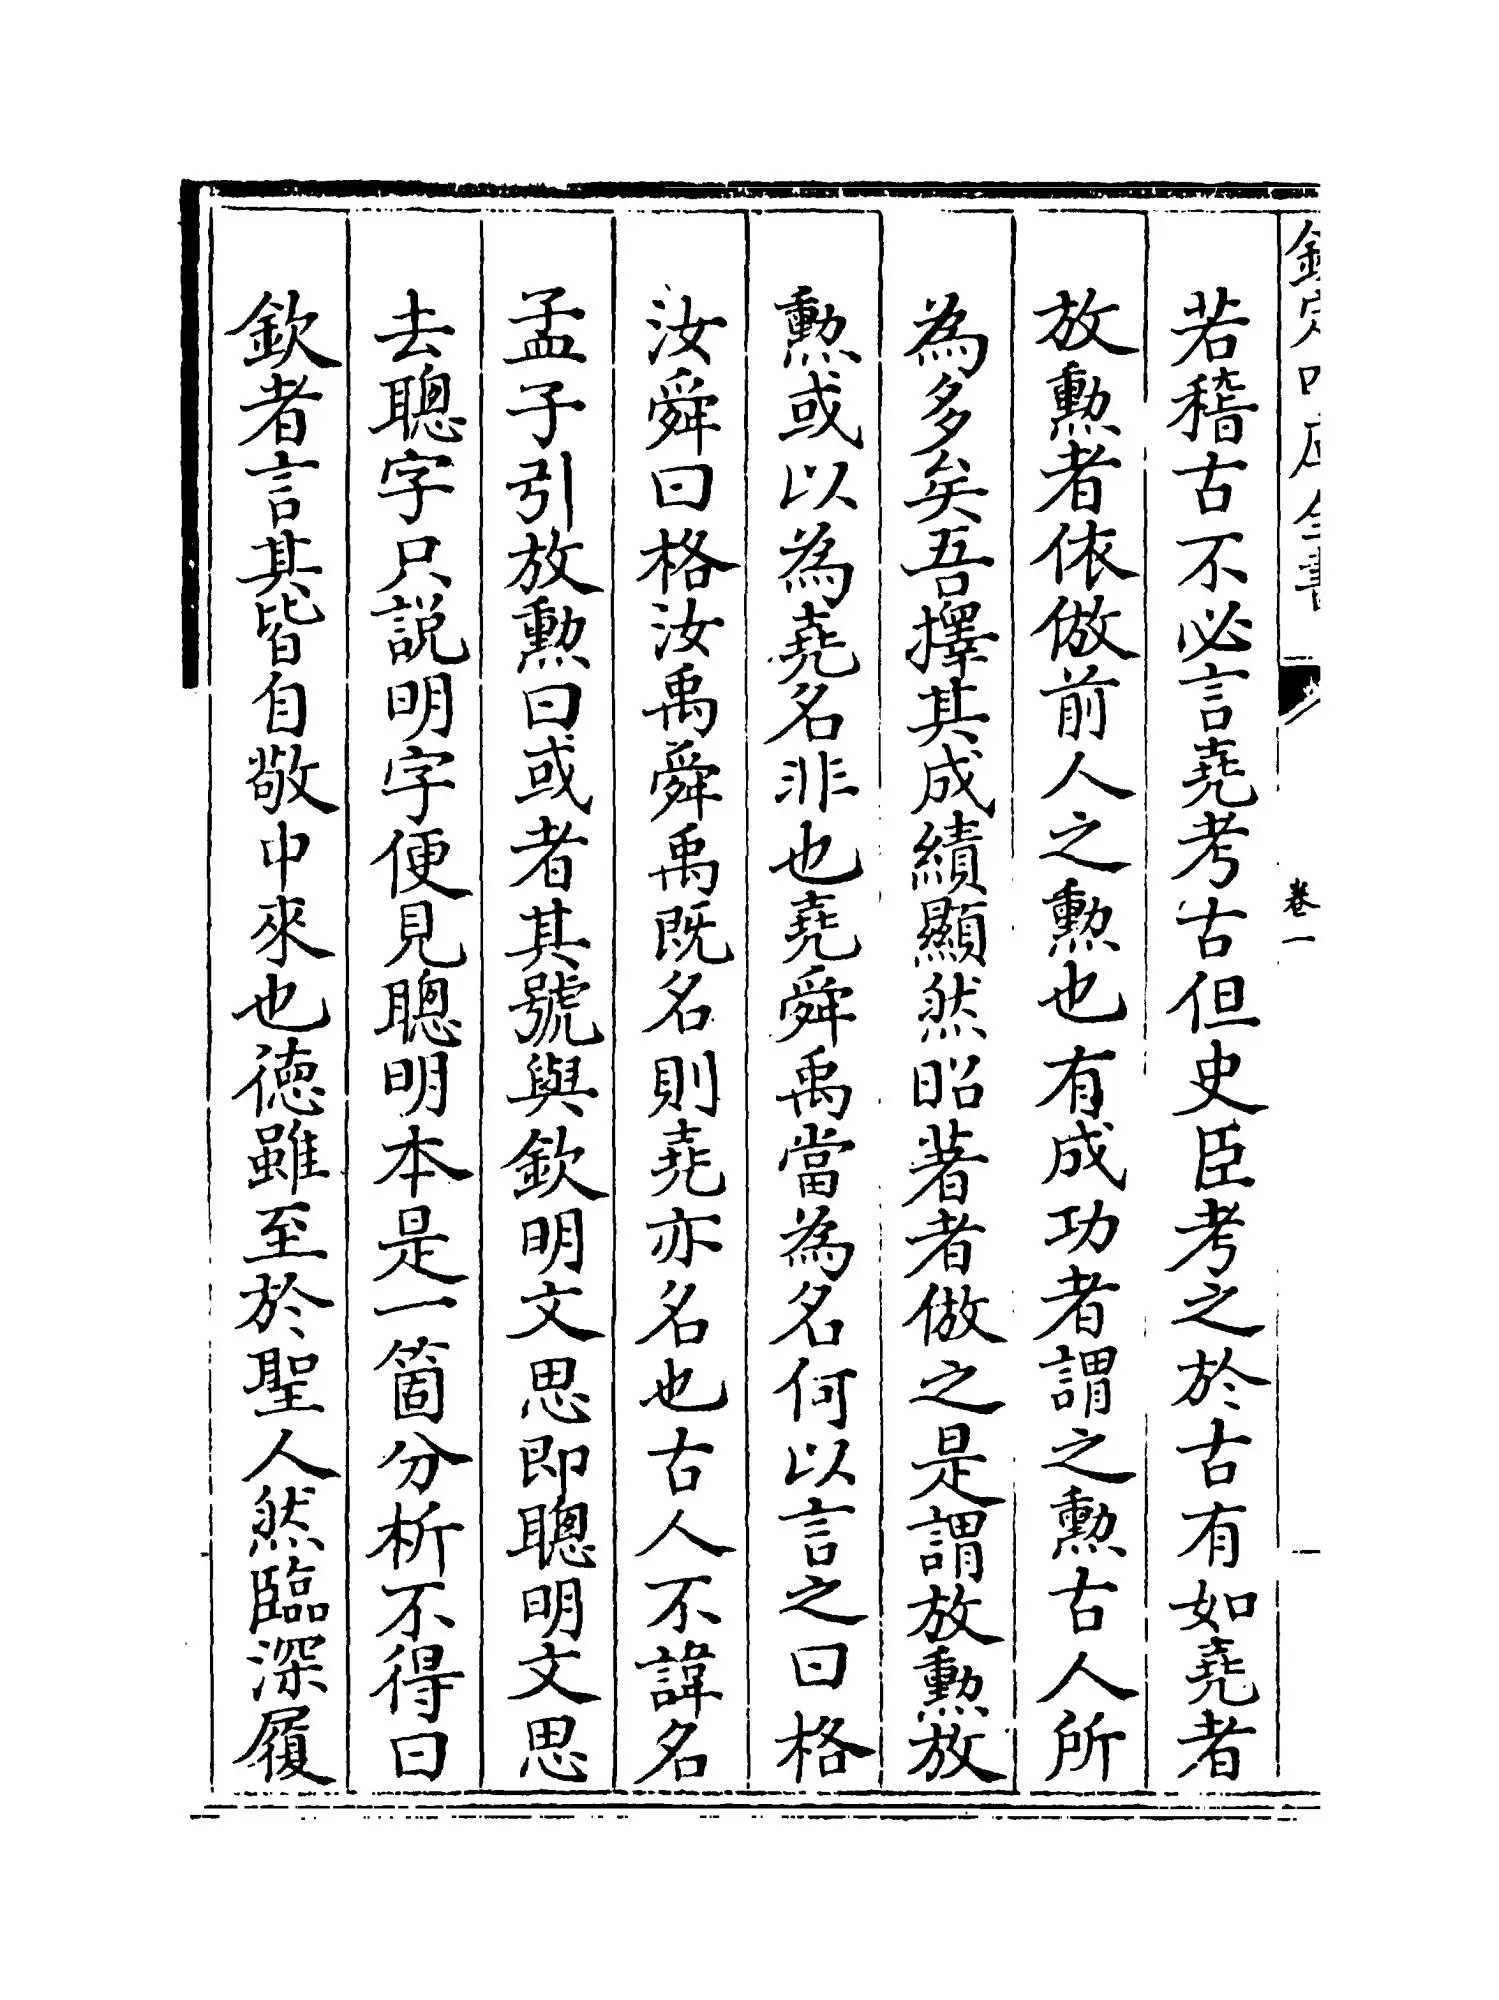 欽定四庫全書
卷一
若稽古不必言堯考古但史臣考之於古有如堯者
放勲者依倣前人之勲也有成功者謂之勲古人所
為多矣吾擇其成績顯然昭著者倣之是謂放勲放
勲或以為堯名非也堯舜禹當為名何以言之曰格
汝舜曰格汝禹舜禹既名則堯亦名也古人不諱名
孟子引放勲曰或者其號與欽明文思即聰明文思
去聰字只説明字便見聰明本是一箇分析不得曰
欽者言其皆自敬中來也徳雖至於聖人然臨深履